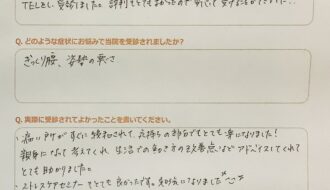 TELをし、受診しました。評判もとてもよかったので安心して受けることができました…!
Q. どのような症状にお悩みで当院を受診されましたか?
ぎっくり腰、姿勢の悪さ
Q. 実際に受診されてよかったことを書いてください。
・痛いトコロがすぐに緩和されて、気持ちの部分でもとても楽になりました!
親身になって考えてくれ、生活での動き方の改善点などアドバイスしてくれて
とても助かりました。
・ストレスケアセミナーもとても良かったです。和めになりました^^